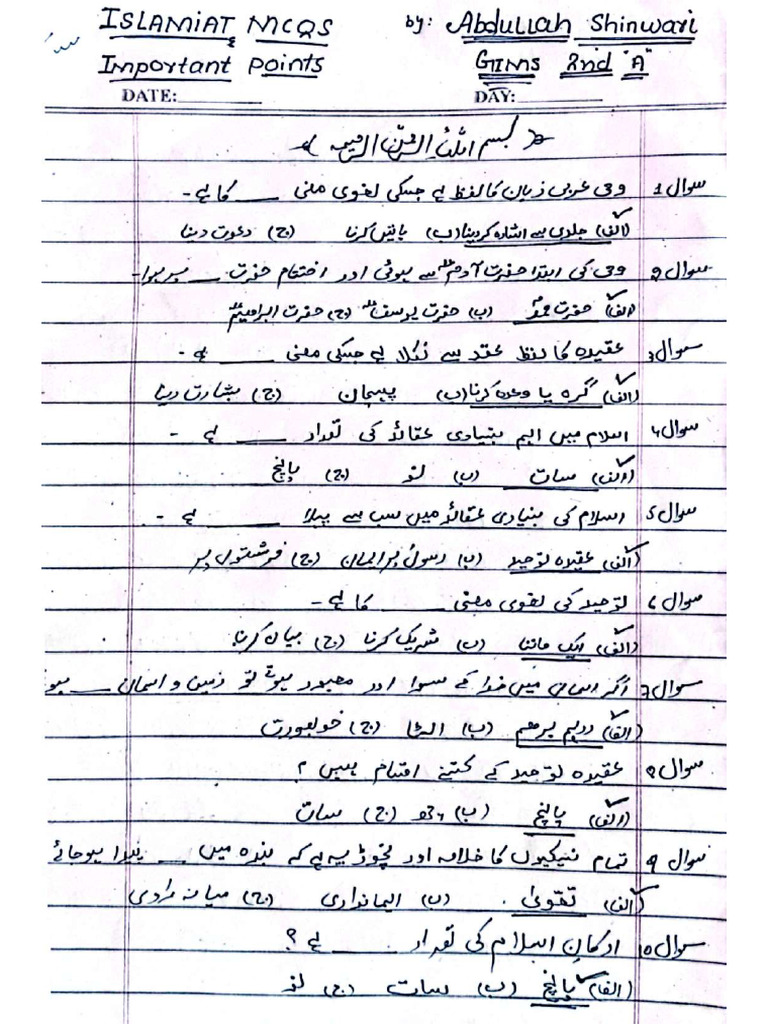 ISLAMIAT MCQS by: Abdullah Shinwari
Important Points GIMS 2nd "A"
DATE: DAY:
بسم اللہ الرحمن الرحیم
سوال 1 وحی عربی زبان کا لفظ ہے جسکی لغوی معنی ____ کا ہے -
(الف) جلدی سے اشارہ کردینا (ب) باتیں کرنا (ج) دعوت دینا
سوال 2 وحی کی ابتدا حضرت آدمؑ سے ہوئی اور اختتام حضرت ____ پر ہوا -
(الف) حضرت محمدؐ (ب) حضرت یوسفؑ (ج) حضرت ابراہیمؑ
سوال 3 عقیدہ کا لفظ عقد سے نکلا ہے جسکی معنی ____ ہے -
(الف) گرہ یا وعدہ کرنا (ب) پہچان (ج) بشارت دینا
سوال 4 اسلام میں اہم بنیادی عقائد کی تعداد ____ ہے -
(الف) سات (ب) نو (ج) پانچ
سوال 5 اسلام کی بنیادی عقائد میں سب سے پہلا ____ ہے -
(الف) عقیدہ توحید (ب) رسولؐ پر ایمان (ج) فرشتوں پر
سوال 6 توحید کی لغوی معنی ____ کا ہے -
(الف) ایک ماننا (ب) شریک کرنا (ج) بیان کرنا
سوال 7 اگر آسمان میں خدا کے سوا اور معبود ہوتے تو زمین و آسمان ____ ہو
(الف) درہم برہم (ب) الٹا (ج) خوبصورت
سوال 8 عقیدہ توحید کے کتنے اقسام ہیں ؟
(الف) پانچ (ب) چھ (ج) سات
سوال 9 تمام نیکیوں کا خلاصہ اور نچوڑ یہ ہے کہ بندہ میں ____ پیدا ہوجائے
(الف) تقویٰ (ب) ایمانداری (ج) میانہ روی
سوال 10 ارکانِ اسلام کی تعداد ____ ہے ؟
(الف) پانچ (ب) سات (ج) نو